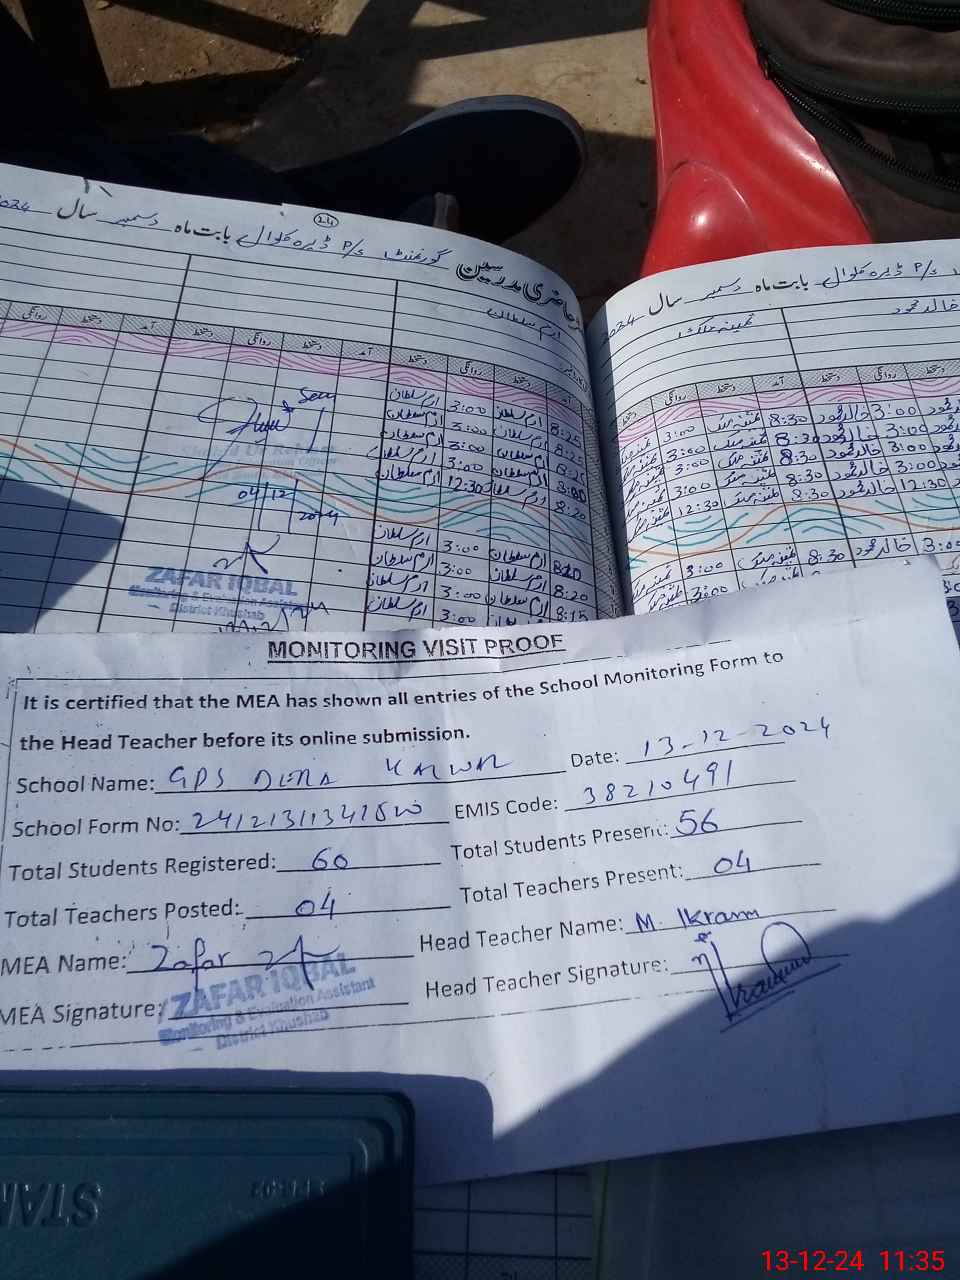 24
حاضری مدرسین گورنمنٹ P/s ڈیرہ کلوال بابت ماہ دسمبر سال 2024
ارم سلطان
دستخط روانگی دستخط آمد دستخط روانگی دستخط آمد دستخط روانگی
ارم سلطان 3:00 ارم سلطان 8:25
ارم سلطان 3:00 ارم سلطان 8:20
ارم سلطان 3:00 ارم سلطان 8:25
ارم سلطان 3:00 ارم سلطان
ارم سلطان 12:30 ارم سلطان 8:20
ارم سلطان 3:00 ارم سلطان 8:20
ارم سلطان 3:00 ارم سلطان 8:20
ارم سلطان 3:00 ارم سلطان 8:15
ارم سلطان 3:00
Seen
04/12/2024
ZAFAR IQBAL
Monitoring & Evaluation Assistant
District Khushab
P/s ڈیرہ کلوال بابت ماہ دسمبر سال 2024
خالد محمود
روانگی دستخط آمد دستخط روانگی دستخط
3:00 خالد محمود 8:30 3:00
3:00 خالد محمود 8:30 3:00
3:00 خالد محمود 8:30 3:00
3:00 خالد محمود 8:30 3:00
12:30 خالد محمود 8:30 12:30
3:00 خالد محمود 8:30 3:00
MONITORING VISIT PROOF
It is certified that the MEA has shown all entries of the School Monitoring Form to
the Head Teacher before its online submission.
School Name: GPS DERA KALWAL Date: 13-12-2024
School Form No: EMIS Code: 38210491
Total Students Registered: 60 Total Students Present: 56
Total Teachers Posted: 04 Total Teachers Present: 04
MEA Name: Zafar Head Teacher Name: M. Ikram
MEA Signature: Head Teacher Signature: Ikram
ZAFAR IQBAL
Monitoring & Evaluation Assistant
District Khushab
STAM
13-12-24 11:35